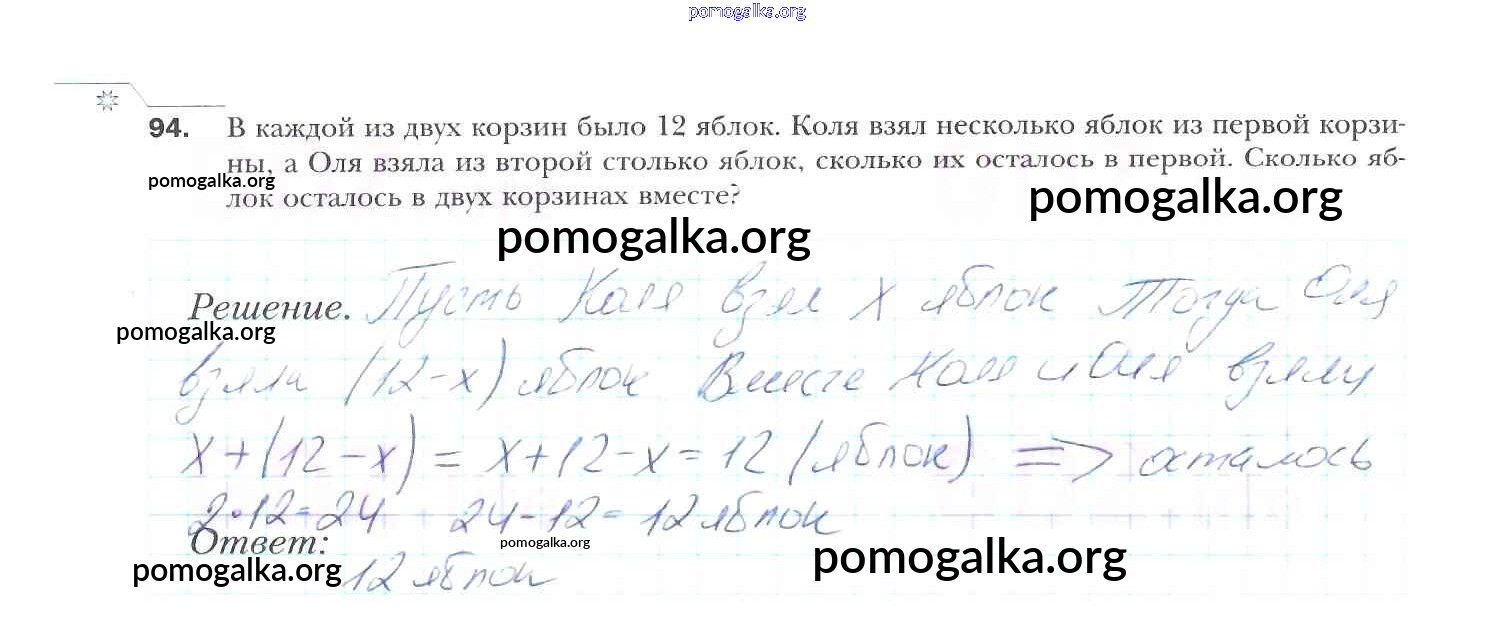 pomogalka.org
94. В каждой из двух корзин было 12 яблок. Коля взял несколько яблок из первой корзи-
ны, а Оля взяла из второй столько яблок, сколько их осталось в первой. Сколько яб-
pomogalka.org
pomogalka.org
лок осталось в двух корзинах вместе?
pomogalka.org
Решение. Пусть Коля взял x яблок Тогда Оля
pomogalka.org
взяла (12-x) яблок Вместе Коля и Оля взяли
x+(12-x)=x+12-x=12 (яблок) => осталось
2•12=24 24-12=12 яблок
Ответ:
pomogalka.org
pomogalka.org
pomogalka.org
12 яблок